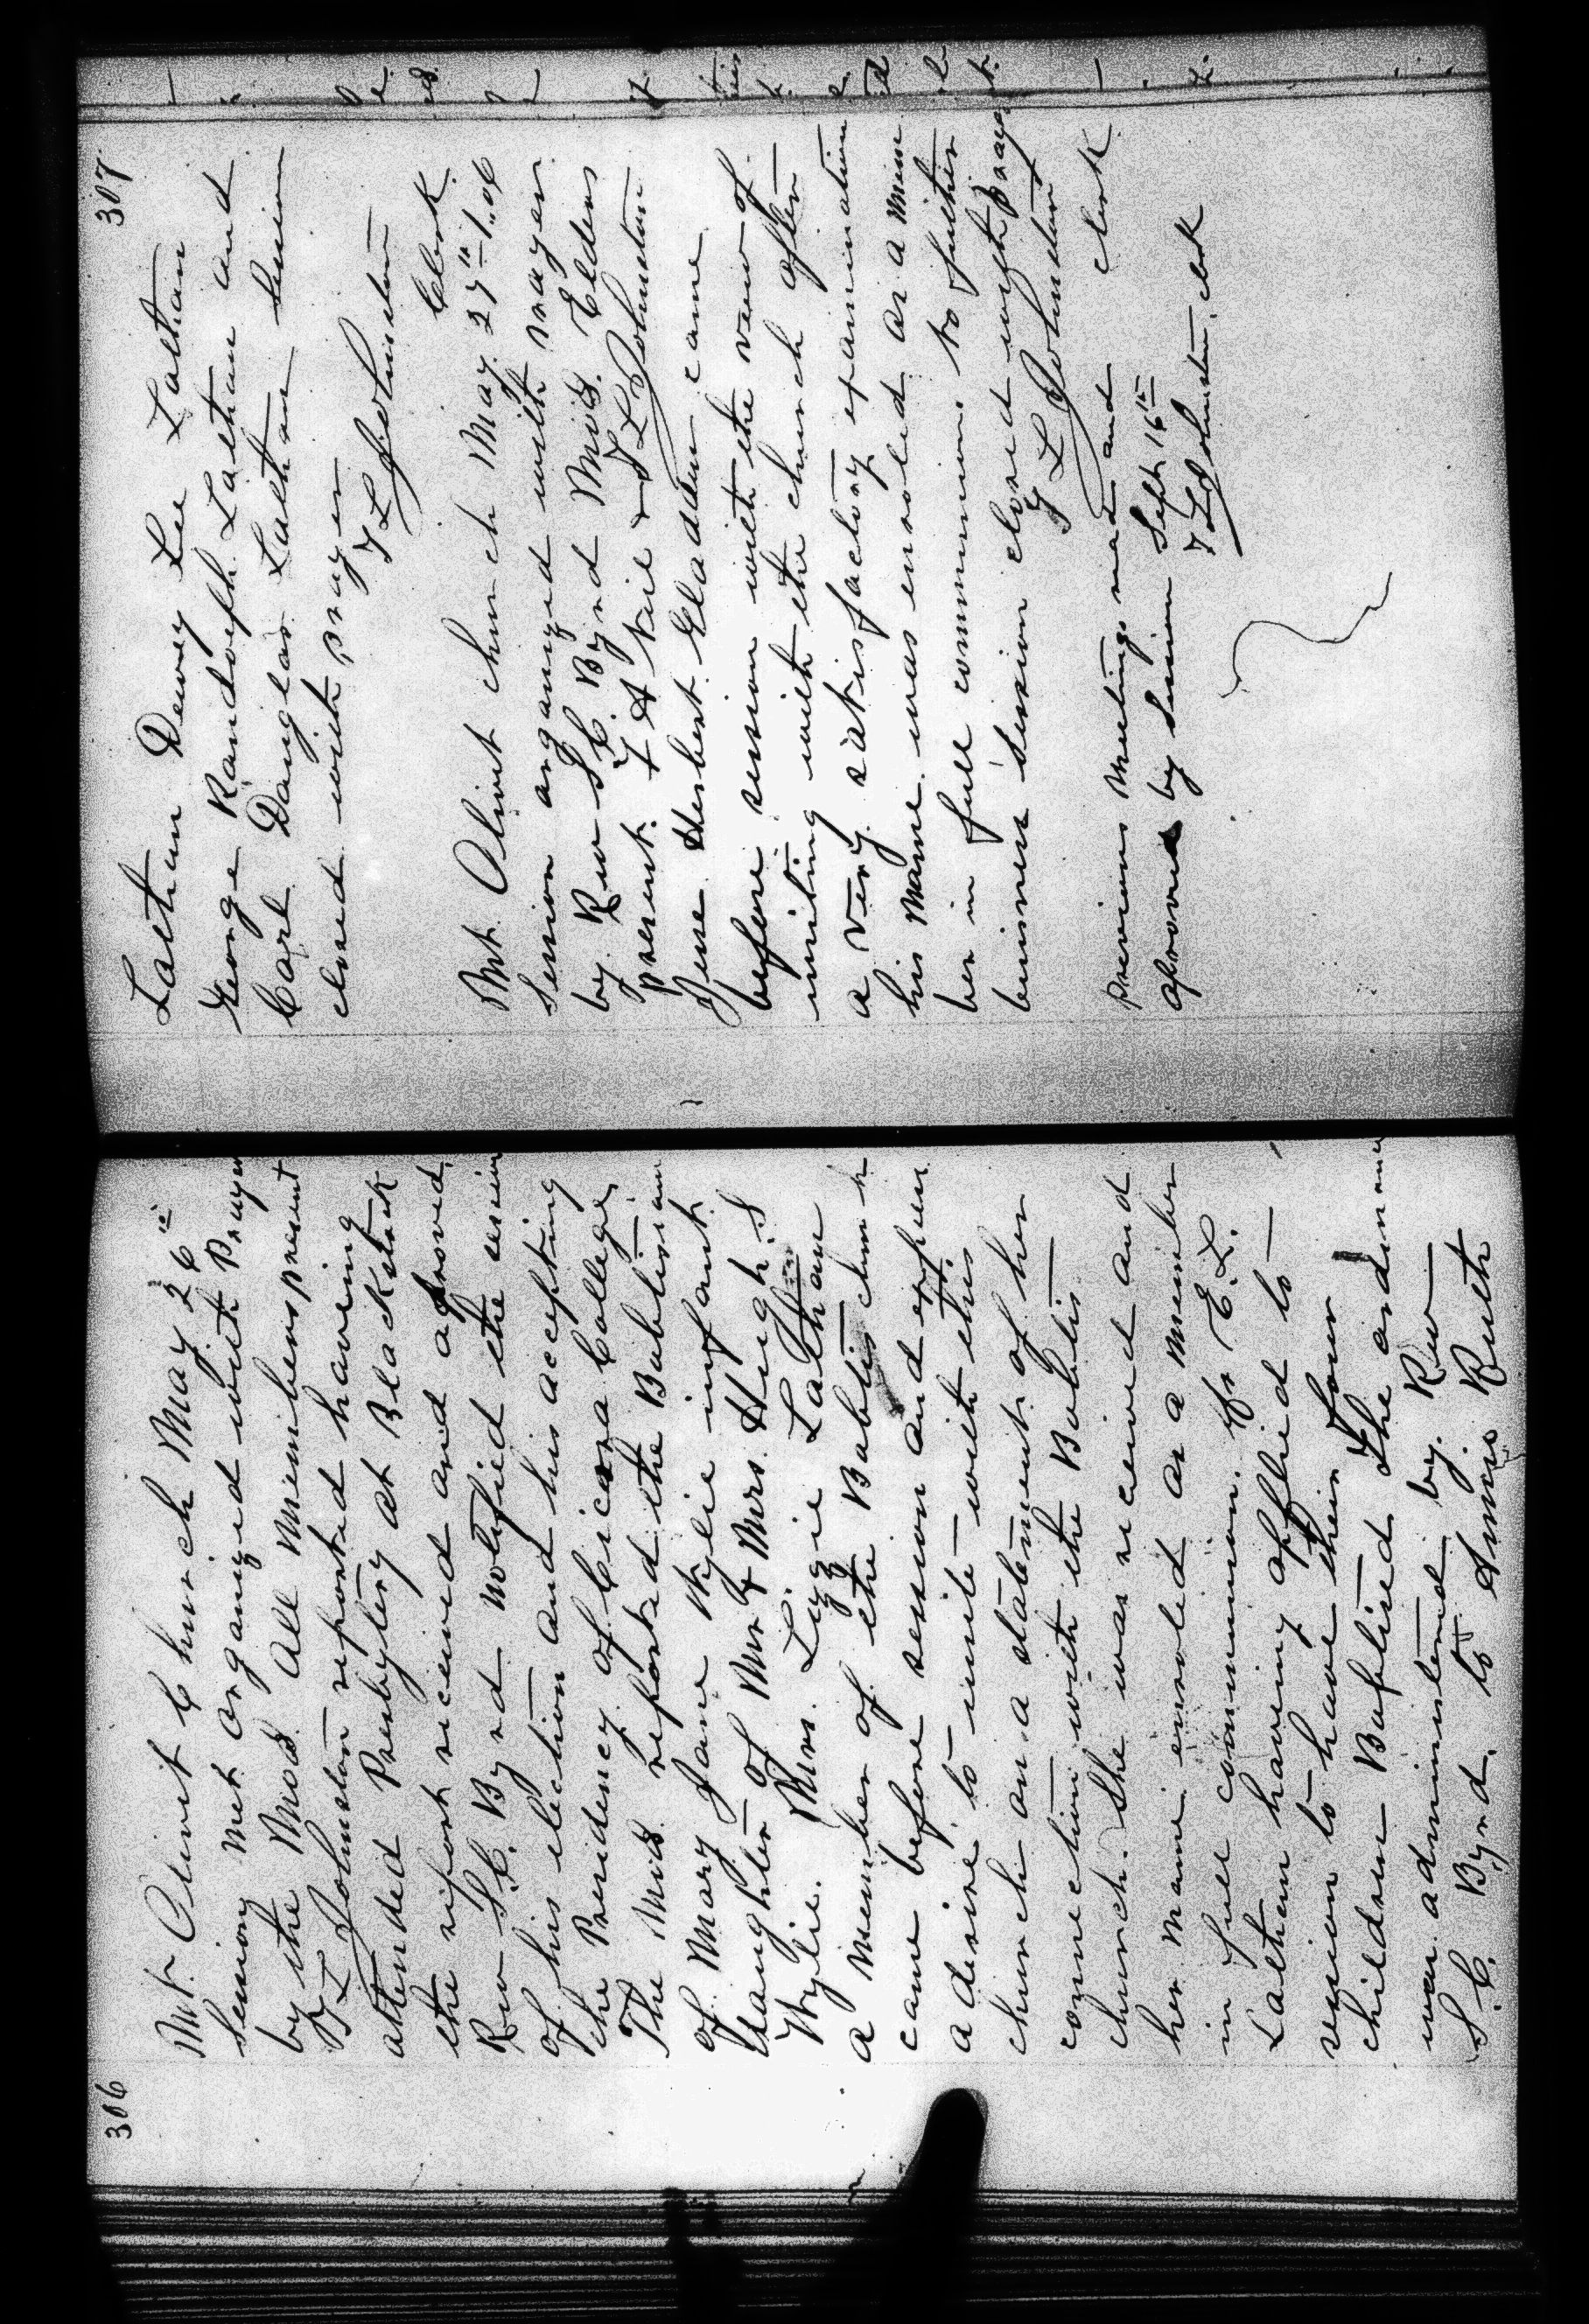 306
Mt. Olivit Church May 26th
Session met organized with Prayer
by the Mod. All Members present
T L Johnston reported having
attended Presbytery at Blackstock
the report received and aproved
Rev S.C. Byrd notified the session
of his election and his accepting
the Presidency of Cicora College,
The Mod. reported the Babtism
of Mary Jane Wylie infant
daughter of Mr & Mrs. Hugh S
Wylie. Mrs. Lizzie Latham
a member of the Babtis church
came before session and express
a desire to unite with this
church on a statement of her
connection with the Babtis
church. She was received and
her name enroled as a member
in full communion. Mr E.L.
Latham having applied to
session to have their four
children Baptised The ordinance
was administered by. Rev
S.C. Byrd. to Annie Ruth
307
Latham Dewey Lee Latham
George Randolph Latham and
Carl Douglas Latham Session
closed with prayer
T L Johnston
Clerk
Mt. Olivit church May 27th 1906
Session organized with prayer
by. Rev S.C. Byrd Mod. Elders
present. T A Kee & T L Johnston
Jesse Herbert Gladden came
before session with the view of
uniting with the church after
a very satisfactory examination
his Name was enroled as a mem
ber in full communion. no further
business session closed with prayer
T L Johnston
clerk
previous Meetings read and
aproved by Session Sept 16th
T L Johnston, clerk